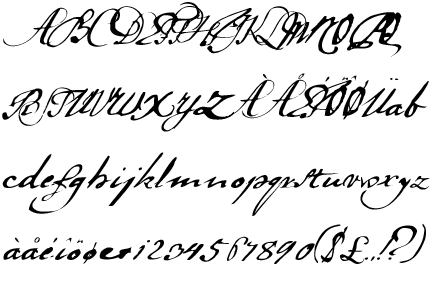 ABCDEFGHIJKLMNOPQ
RSTUVWXYZÀÅÉÎÕØÜab
cdefghijklmnopqrstuvwxyz
àåéîõøer1234567890($£.,!?)